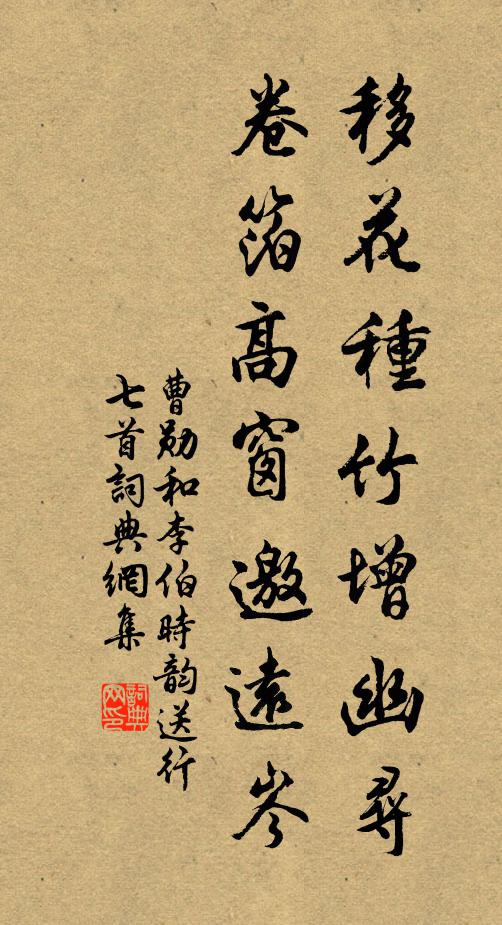 移花種竹增幽尋
卷箔高窗邀遠岑
曹勛和李伯時韵送行
七首詞典網集
詞典网印